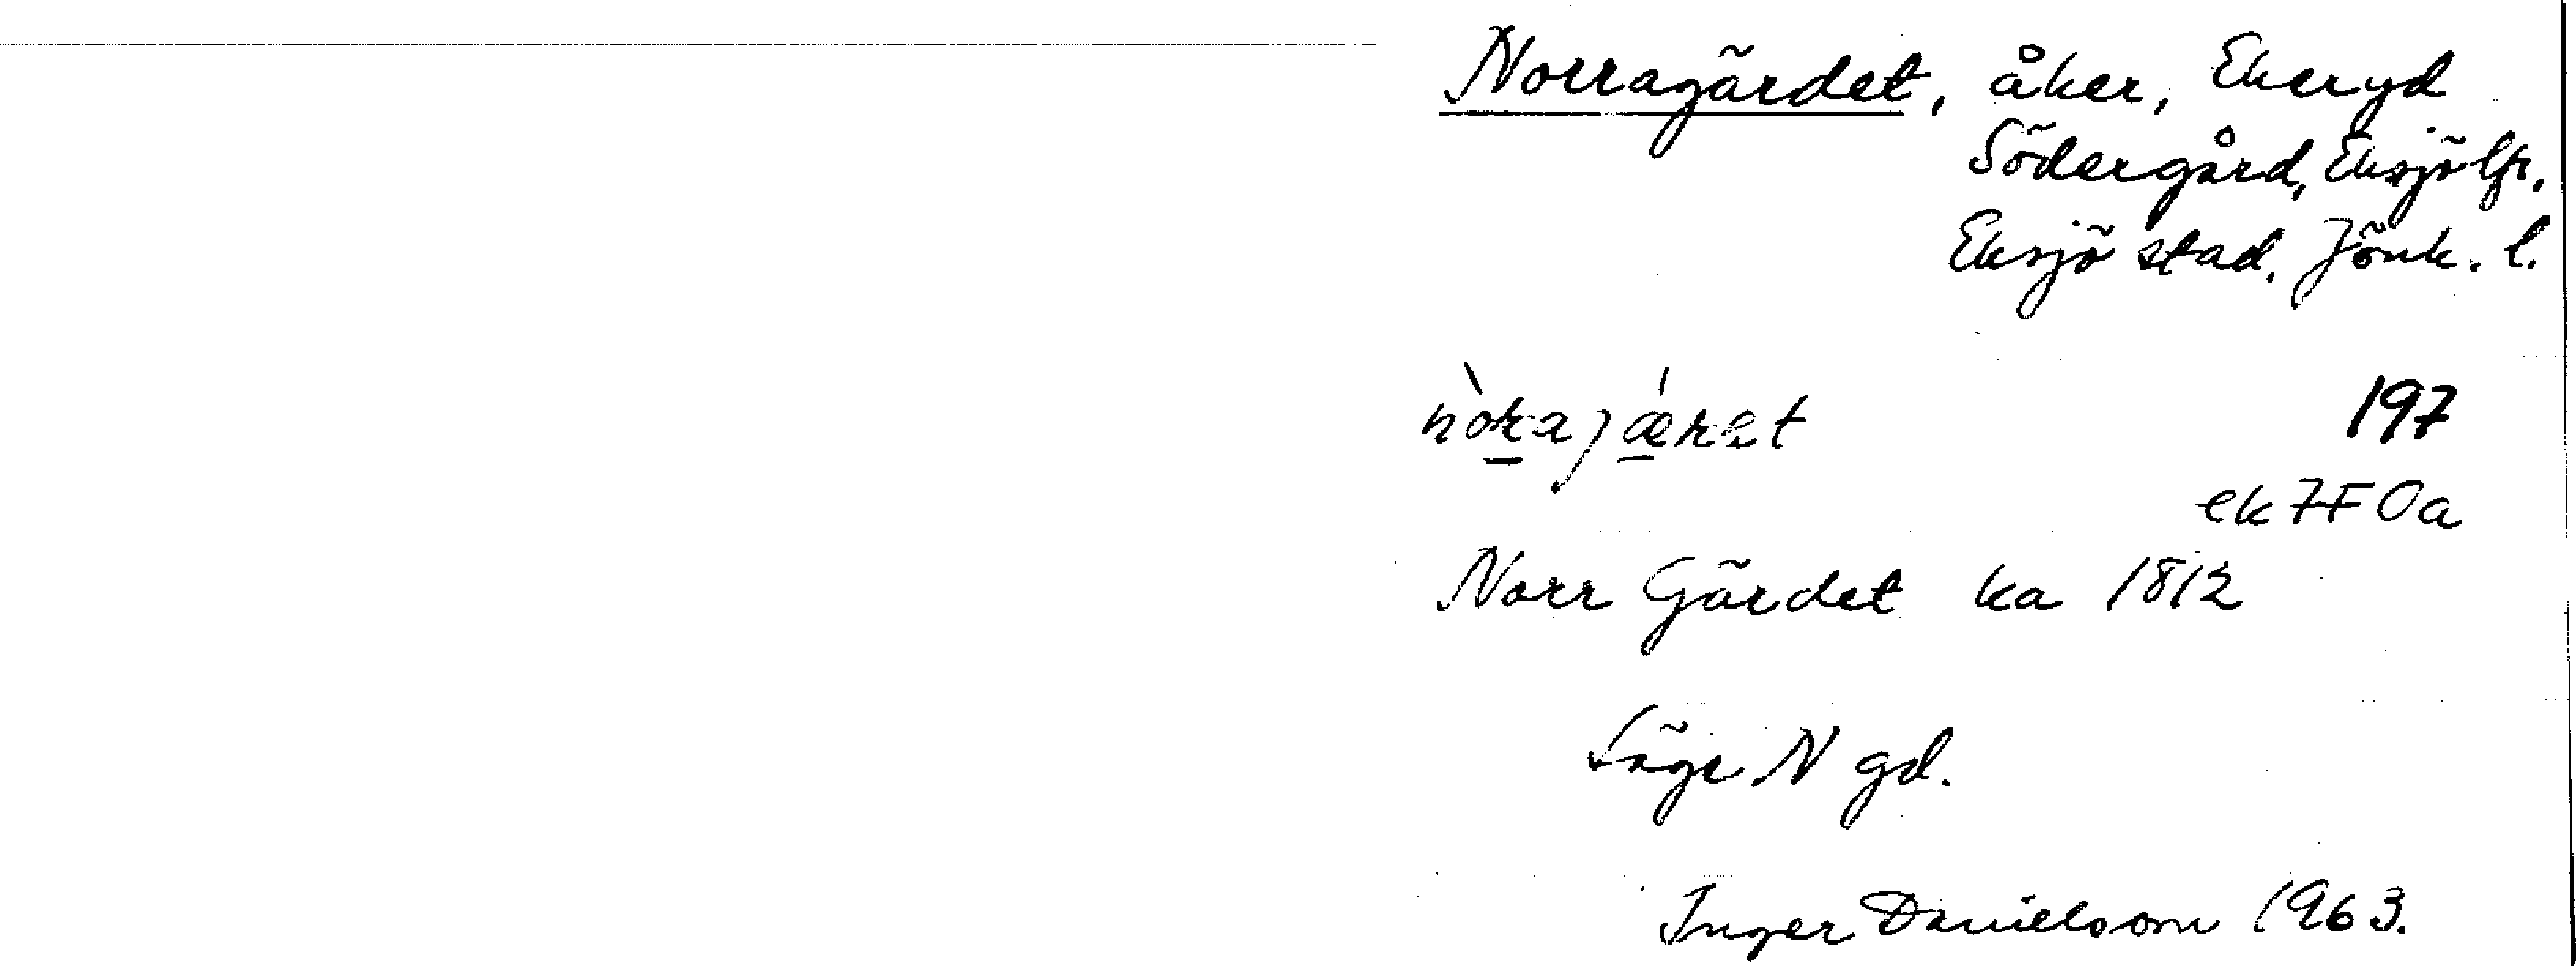 Norragärdet, åker, Ekeryd
Södergård, Eksjö lfs.
Eksjö stad, Jönk. l.
nòrajǽrət
197
ek 7F 0a
Norr Gärdet ka 1812
N gd.
Inger Danielsson 1963.